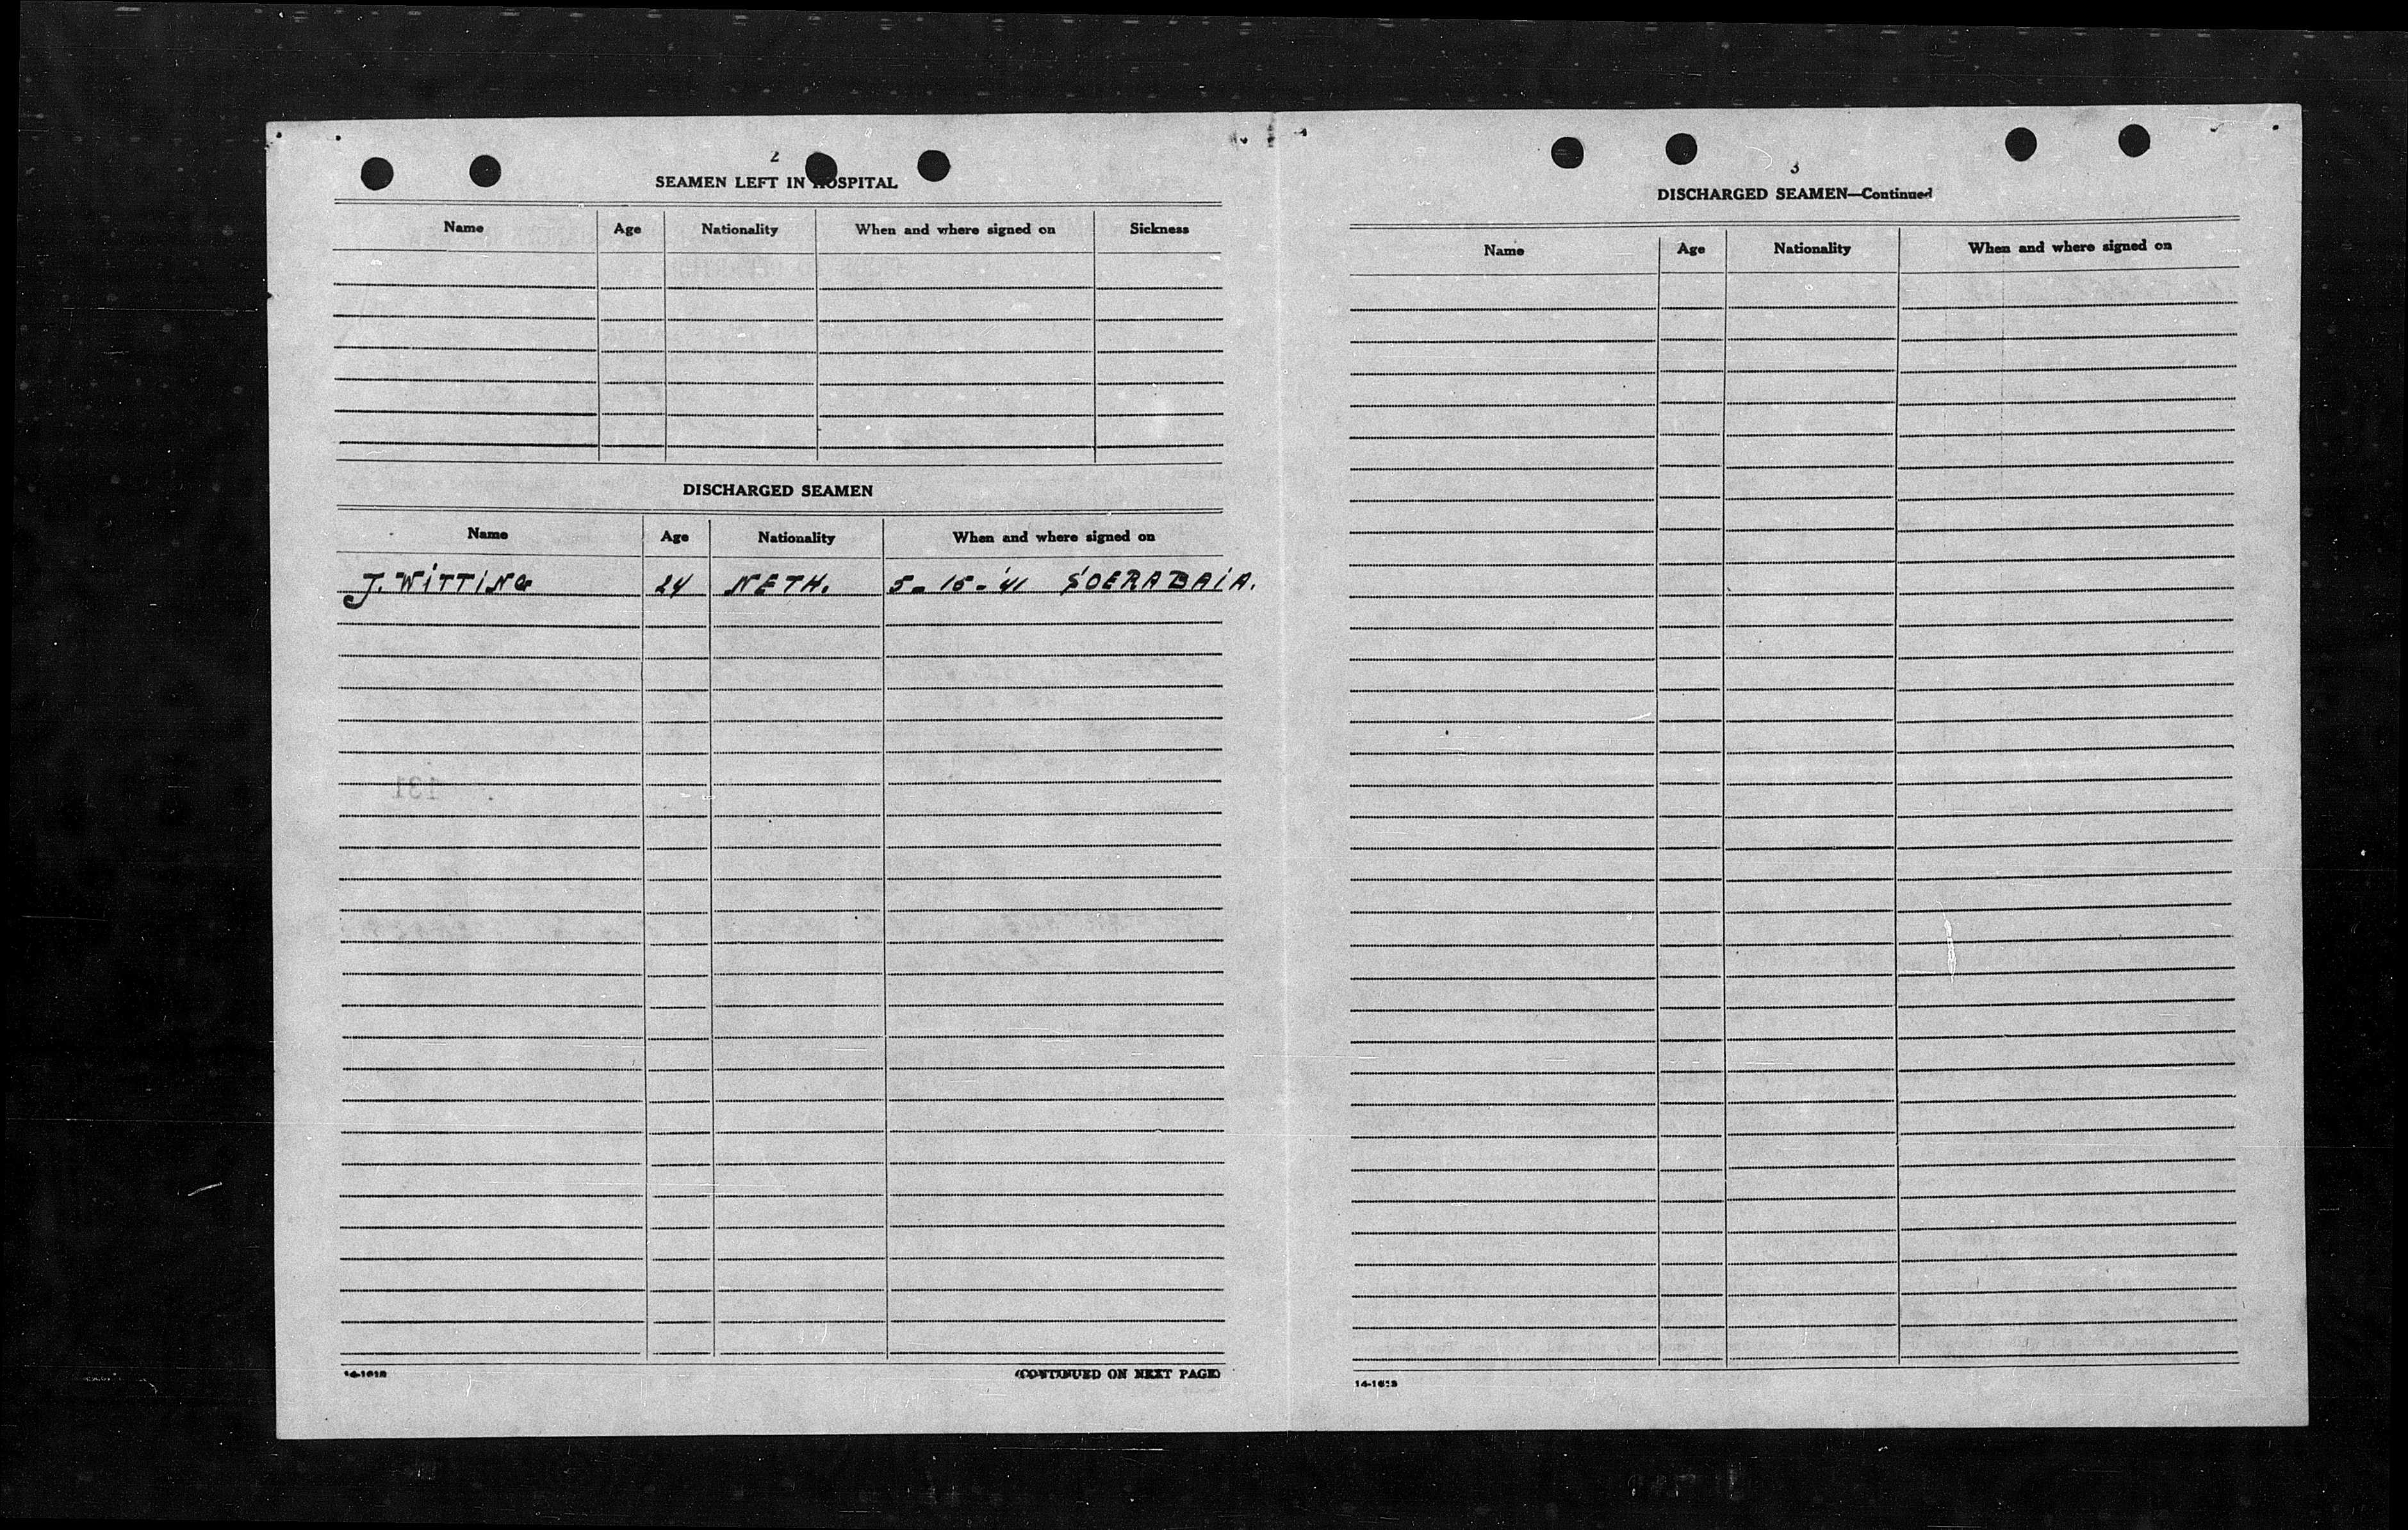 2
SEAMEN LEFT IN HOSPITAL
Name Age Nationality When and where signed on Sickness
DISCHARGED SEAMEN
Name Age Nationality When and where signed on
J. WITTING 24 NETH. 5-15-'41 SOERABAIA.
131
14-1618 (CONTINUED ON NEXT PAGE)
3
DISCHARGED SEAMEN—Continued
Name Age Nationality When and where signed on
14-1618